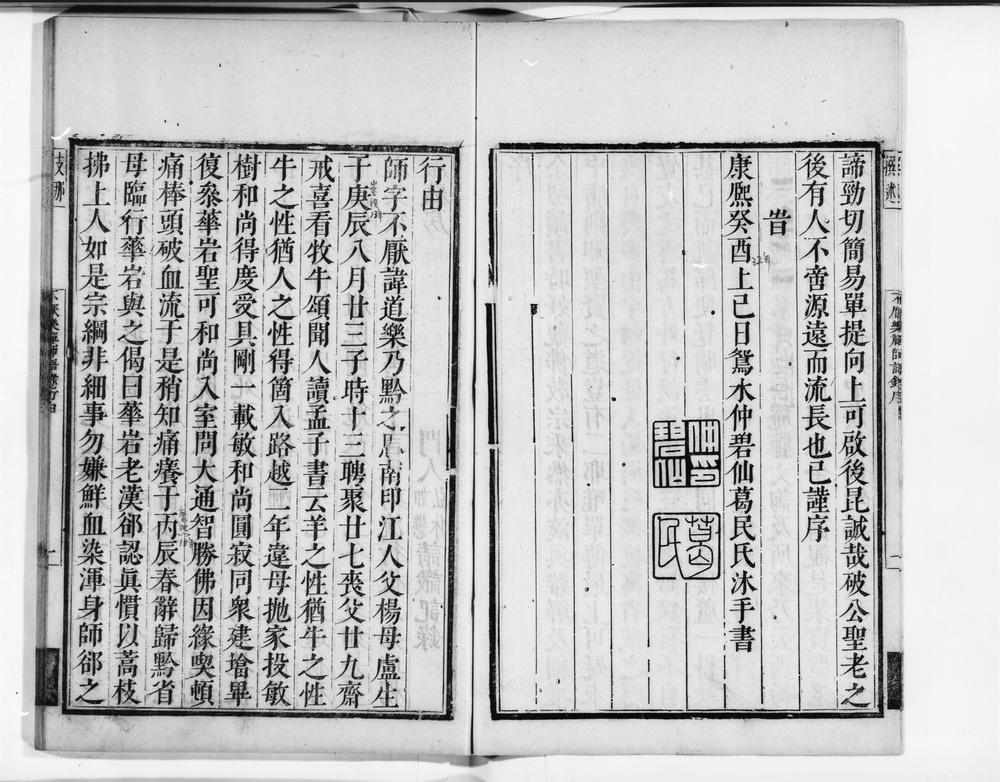 諦勁切簡易單提向上可啟後昆誠哉破公聖老之
後有人不啻源遠而流長也已謹序
旹
康熈癸酉上巳日鴛水仲碧仙葛民氏沐手書
行由
師字不厭諱道樂乃黔之思南印江人父楊母盧生
于庚辰八月廿三子時十三聘聚廿七丧父廿九齋
戒喜看牧牛頌聞人讀孟子書云羊之性猶牛之性
牛之性猶人之性得箇入路越二年違母拋家投敏
樹和尚得度受具剛一載敏和尚圓寂同衆建墖畢
復叅華岩聖可和尚入室問大通智勝佛因緣喫頓
痛棒頭破血流于是稍知痛癢于丙辰春辭歸黔省
母臨行華岩與之偈曰華岩老漢郤認眞慣以蒿枝
拂上人如是宗綱非細事勿嫌鮮血染渾身師郤之